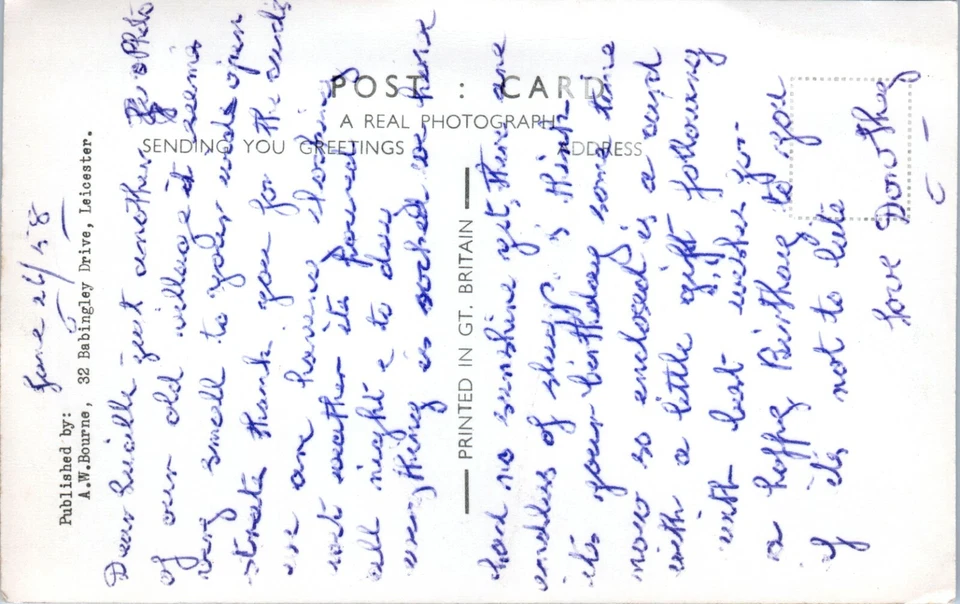 POST : CARD
A REAL PHOTOGRAPH
SENDING YOU GREETINGS
ADDRESS
PRINTED IN GT. BRITAIN
Published by:
A.W.Bourne, 32 Babingley Drive, Leicester.
June 24/58
Dear Lucille - just another photo
of our old village it seems
very small to your wide open
streets thank you for the cards
we are having shocking
wet weather its poured
all night & to day
everything is soaked we have
had no sunshine yet, there are
endless of slugs, i think
its your birthday some time
now so enclosed is a card
with a little gift following
with best wishes for
a happy Birthday to you
if its not to late
love Dorothy